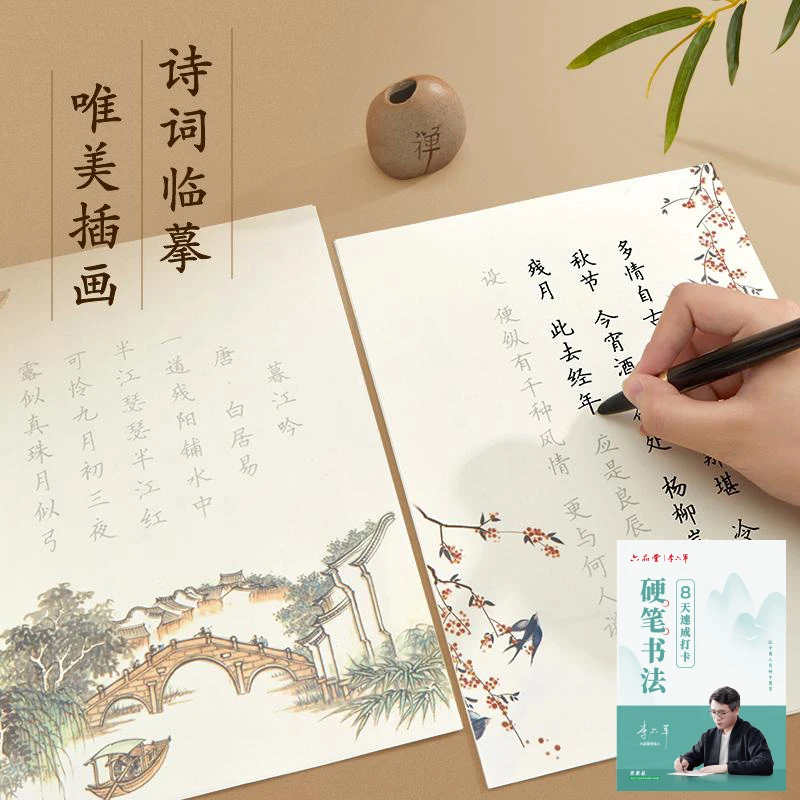 诗词临摹
唯美插画
禅
暮江吟
唐·白居易
一道残阳铺水中
半江瑟瑟半江红
可怜九月初三夜
露似真珠月似弓
多情自古 堪 冷
秋节 今宵酒 处 杨柳岸
残月 此去经年 应是良辰
设 便纵有千种风情 更与何人说
六品堂|李六军
8天速成打卡
硬笔书法
李六军